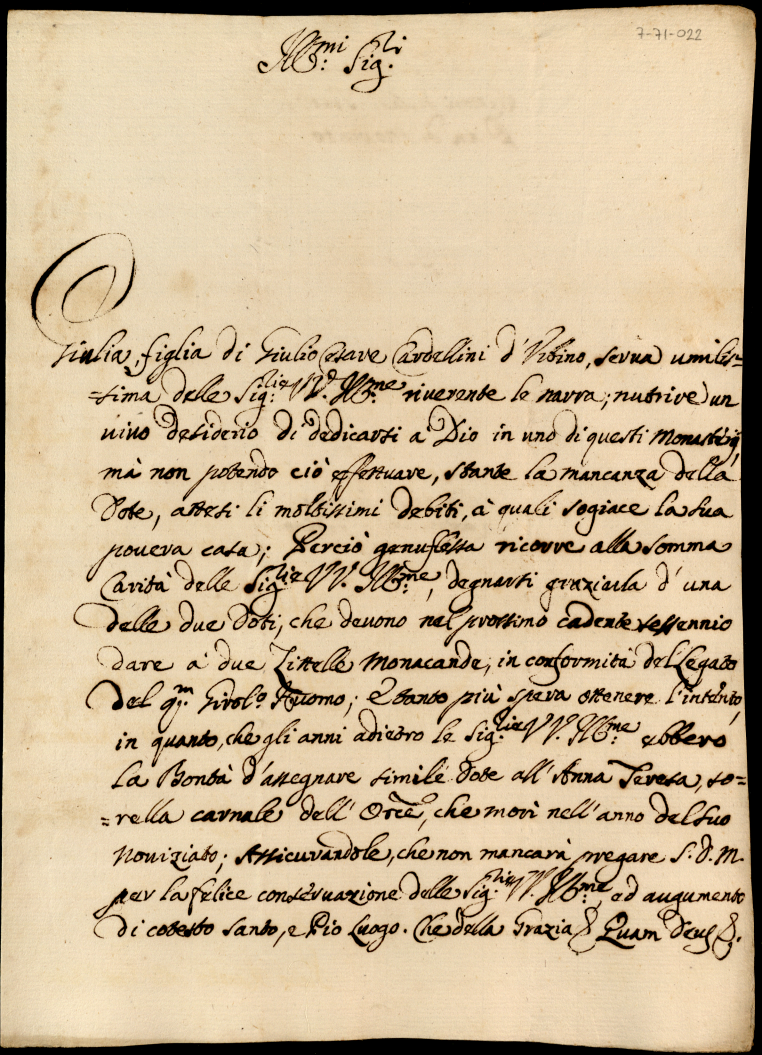 7-71-022
Ill:mi Sig:ri
Giulia, figlia di Giulio Cesare Cardellini d'Urbino, serva umilis=
=sima delle Sig:rie VV. Ill:me riverente le narra; nutrire un
vivo desiderio di dedicarsi à Dio in uno di questi Monasterij,
mà non potendo ciò effettuare, stante la mancanza della
Dote, attesi li moltissimi debiti, à quali sogiace la sua
povera casa; Perciò genuflessa ricorre alla somma
Carità delle Sig:rie VV. Ill:me, degnarsi graziarla d'una
delle due Doti, che devono nel prossimo cadente sessennio
dare à due Zittelle Monacande, in conformità del Legato
del q:m Girol:o; E tanto più spera ottenere l'intento,
in quanto, che gli anni adietro le Sig:rie VV. Ill:me ebbero
la Bontà d'assegnare simile Dote all'Anna Teresa, so=
=rella carnale dell'Orce, che morì nell'anno del suo
Noviziato; Assicurandole, che non mancarà pregare S. D. M.
per la felice conservazione delle Sig:rie VV. Ill:me, ed augumento
di cotesto Santo, e Pio Luogo. Che della Grazia Quam Deus